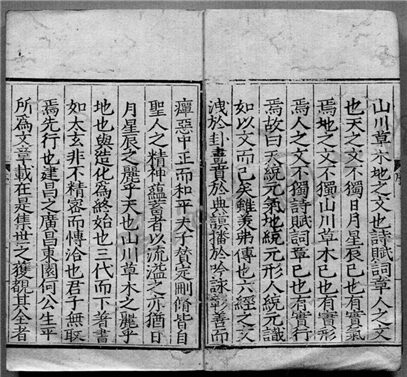 山川草木地之文也詩賦詞章人之文
也天之文不獨日月星辰已也有實氣
焉地之文不獨山川草木已也有實形
焉人之文不獨詩賦詞章已也有實行
焉故曰天統元氣地統元形人統元識
如以文而已矣雖羲弗傳也六經之文
洩於卦畫賁於典謨播於吟詠彰善而
癉惡中正而和平夫子贊定刪脩皆自
聖人之精神蘊蓄者以流溢之亦猶日
月星辰之麗乎天也山川草木之麗乎
地也與造化為終始也三代而下著書
如太玄非不精密而博洽也君子無取
焉先行也建昌之廣昌東園何公生平
所為文章載在是集世之獲覩其全者